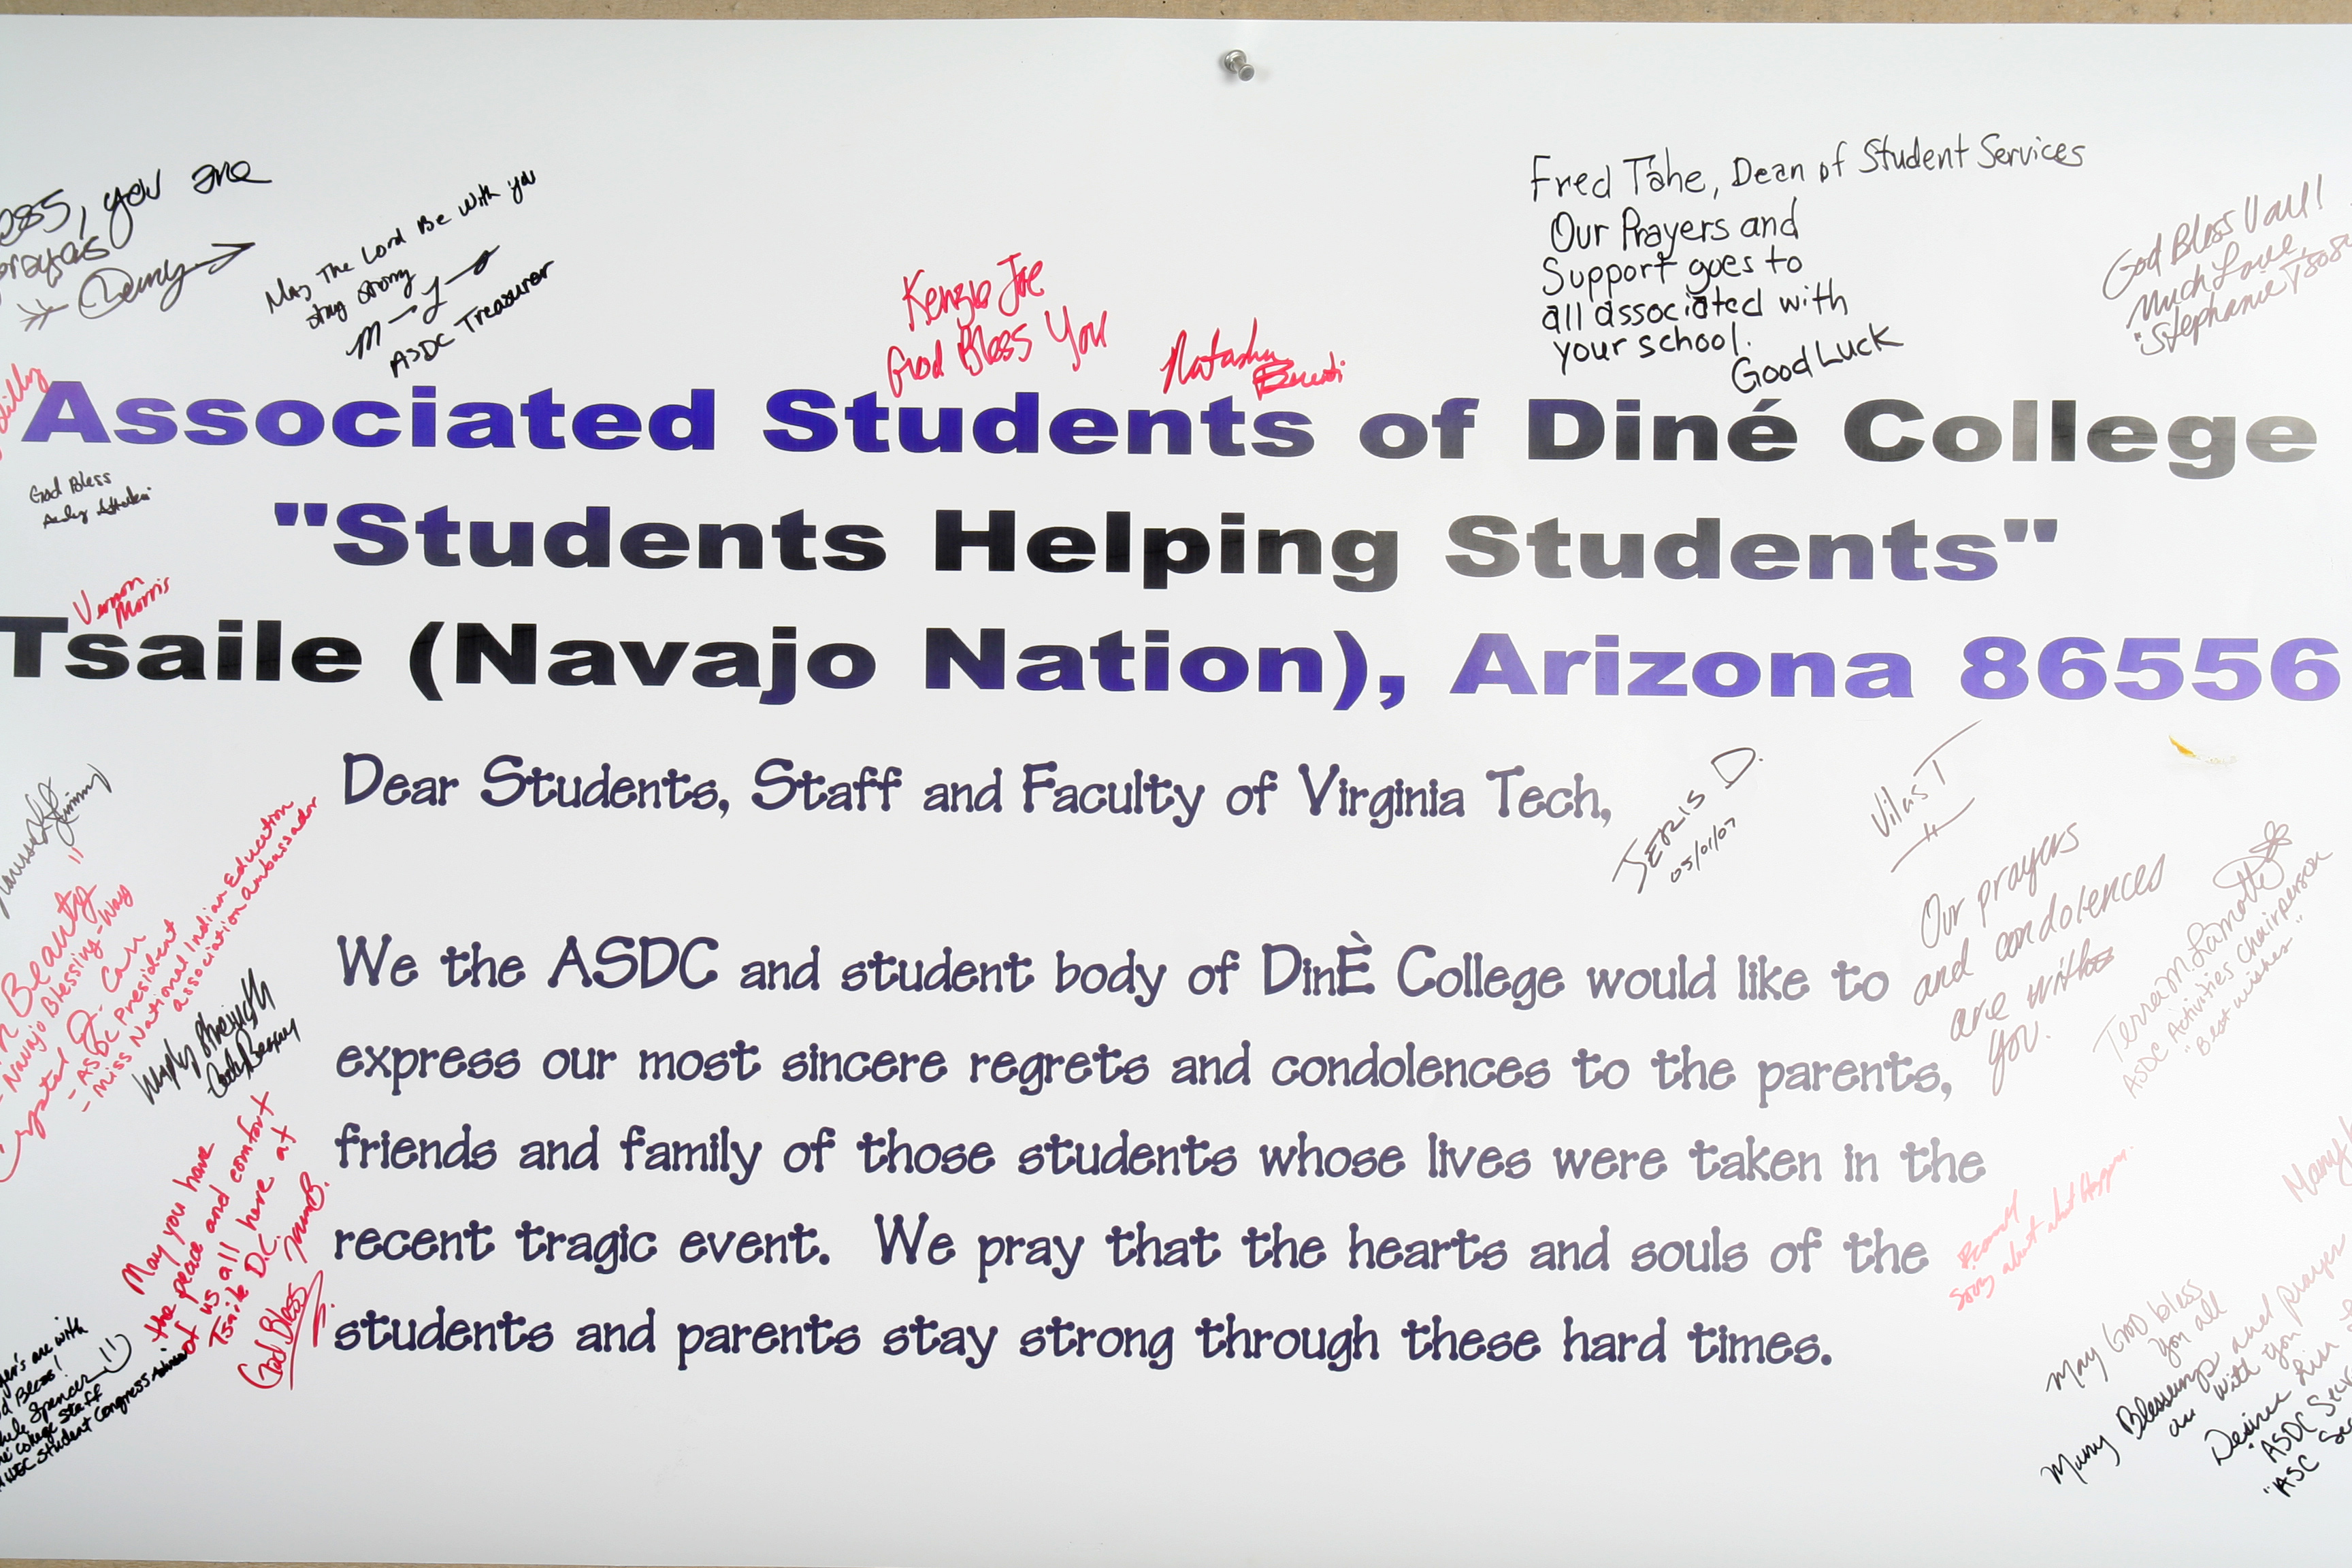 you are
May The Lord Be With you
stay strong
ASDC Treasurer
Kenzie Joe
God Bless You
Natasha
Fred Tahe, Dean of Student Services
Our Prayers and
Support goes to
all associated with
your school.
Good Luck
God Bless Yall!
Much Love,
"Stephanie Tsosie
Associated Students of Diné College
God Bless
"Students Helping Students"
Vernon
Morris
Tsaile (Navajo Nation), Arizona 86556
Dear Students, Staff and Faculty of Virginia Tech,
JERIS D.
05/01/07
Vilas T
Our prayers
and condolences
are with
you.
Terra M. Lamotte
ASDC Activities chairperson
"Best wishes"
Beauty
- Navajo Blessing-Way
Crystal Q. Carr
- ASDC President
- Miss National Indian Education
association ambassador
We the ASDC and student body of DinÈ College would like to
express our most sincere regrets and condolences to the parents,
friends and family of those students whose lives were taken in the
recent tragic event. We pray that the hearts and souls of the
students and parents stay strong through these hard times.
May you have
the peace and comfort
of us all here at
Tsaile D.C.
God Bless
are with
Bless!
Spencer
College Staff
Student Congress Advisor
Sorry about what happen.
Many
May GOD bless
you all
Many Blessings and prayer
are with you
Desiree
"ASDC
"ASC